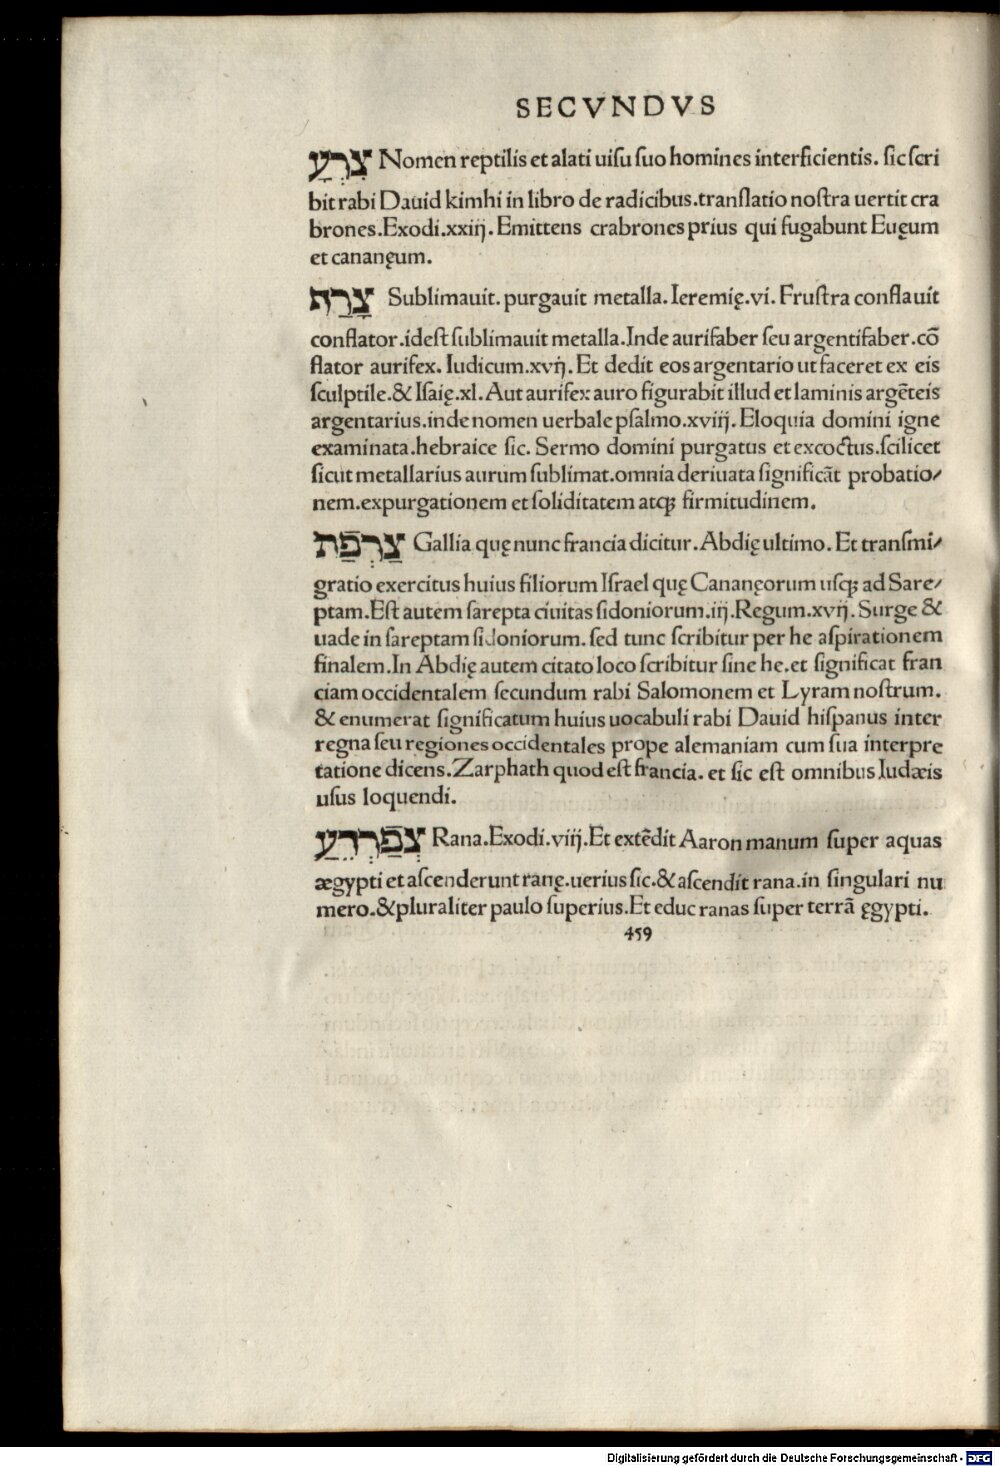 SECVNDVS
צִרְעָ Nomen reptilis et alati uiſu ſuo homines interficientis. ſic ſcri
bit rabi Dauid kimhi in libro de radicibus.tranſlatio noſtra uertit cra
brones.Exodi.xxiij. Emittens crabrones prius qui fugabunt Euęum
et cananęum.
צָרַף Sublimauit. purgauit metalla. Ieremię.vi. Fruſtra conflauit
conflator.ideſt ſublimauit metalla.Inde aurifaber ſeu argentifaber.cō
flator aurifex. Iudicum.xvij. Et dedit eos argentario ut faceret ex eis
ſculptile.& Iſaię.xl. Aut aurifex auro figurabit illud et laminis argēteis
argentarius.inde nomen uerbale pſalmo.xviij. Eloquia domini igne
examinata.hebraice ſic. Sermo domini purgatus et excoctus.ſcilicet
ſicut metallarius aurum ſublimat.omnia deriuata ſignificāt probatio/
nem.expurgationem et ſoliditatem atqꝫ firmitudinem.
צָרְפַת Gallia quę nunc francia dicitur. Abdię ultimo. Et tranſmi/
gratio exercitus huius filiorum Iſrael quę Cananęorum uſqꝫ ad Sare/
ptam.Eſt autem ſarepta ciuitas ſidoniorum.iij.Regum.xvij. Surge &
uade in ſareptam ſidoniorum. ſed tunc ſcribitur per he aſpirationem
finalem.In Abdię autem citato loco ſcribitur ſine he.et ſignificat fran
ciam occidentalem ſecundum rabi Salomonem et Lyram noſtrum.
& enumerat ſignificatum huius uocabuli rabi Dauid hiſpanus inter
regna ſeu regiones occidentales prope alemaniam cum ſua interpre
tatione dicens.Zarphath quod eſt francia. et ſic eſt omnibus Iudæis
uſus loquendi.
צְפַרְדֵעַ Rana.Exodi.viij.Et extēdit Aaron manum ſuper aquas
ægypti et aſcenderunt ranę.uerius ſic.& aſcendit rana.in ſingulari nu
mero.&pluraliter paulo ſuperius.Et educ ranas ſuper terrā ęgypti.
459
Digitalisierung gefördert durch die Deutsche Forschungsgemeinschaft - DFG